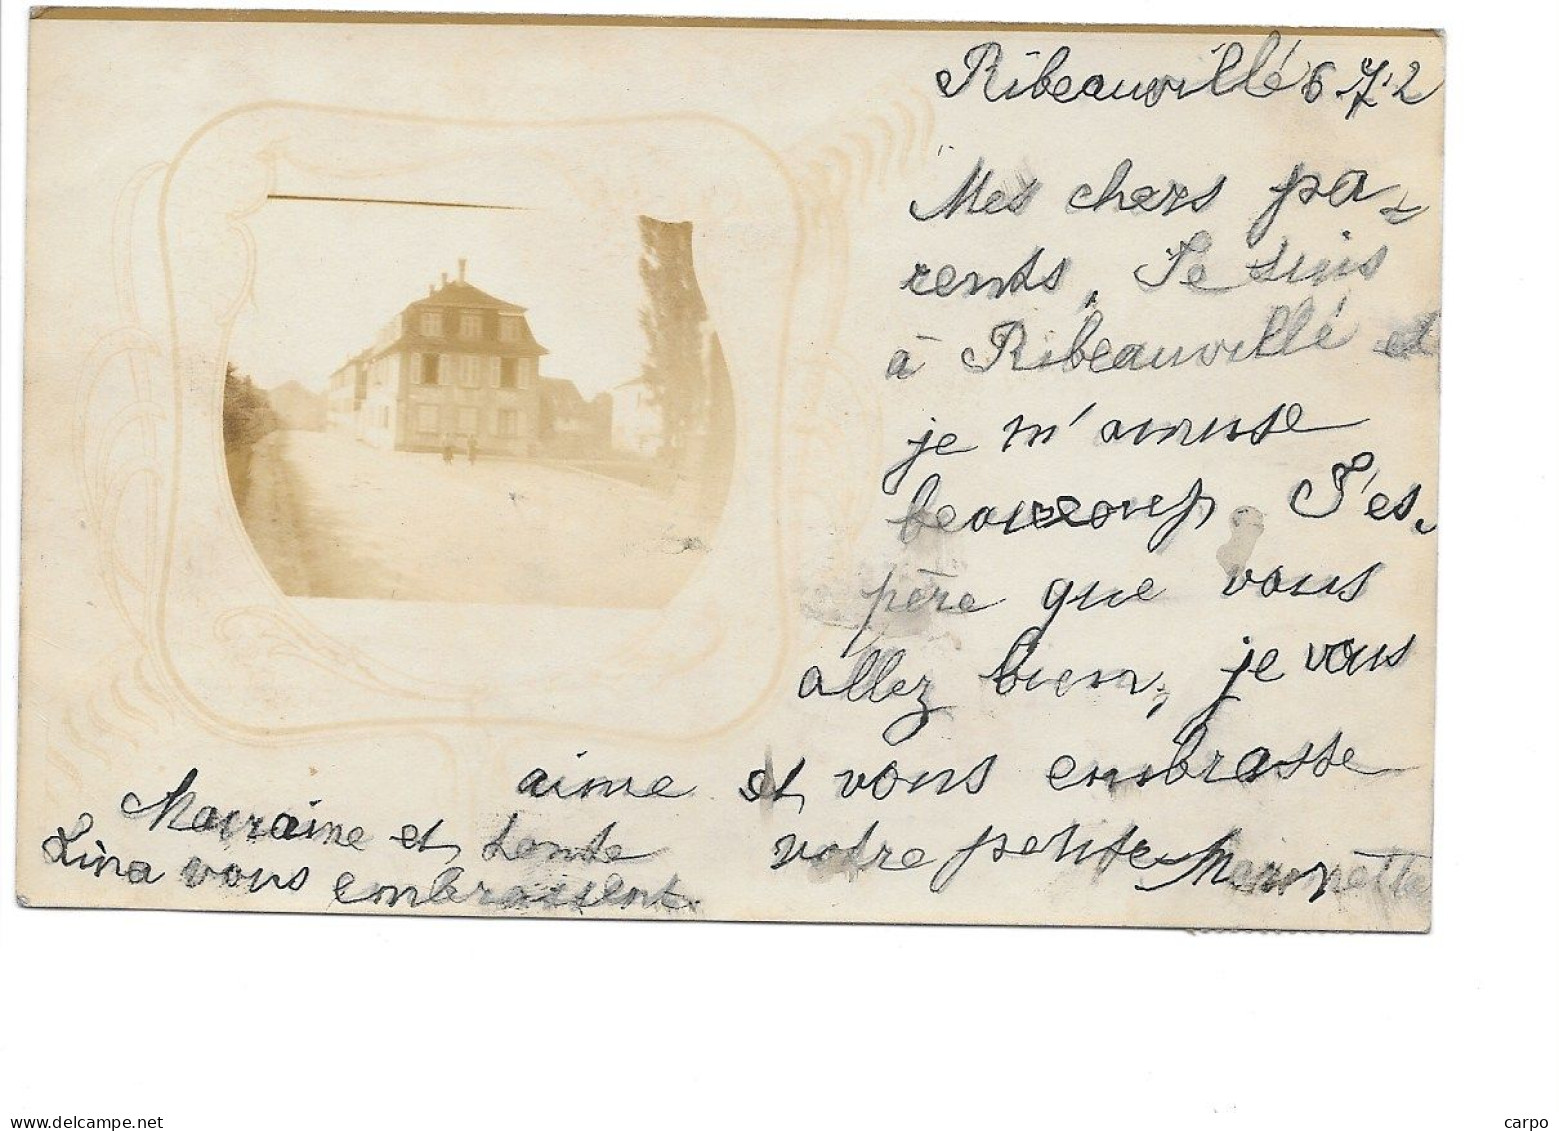 Ribeauvillé 6.7.2
Mes chers pa-
rents, Je suis
à Ribeauvillé et
je m'amuse
beaucoup. J'es-
père que vous
allez bien, je vous
aime et vous embrasse
votre petite
Marraine et tante
Lina vous embrassent.
www.delcampe.net
carpo